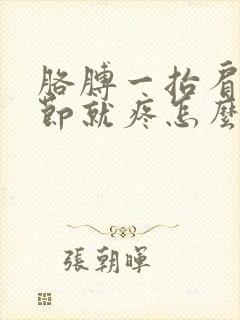 胳膊一抬肩
節就疼怎麼
張朝暉